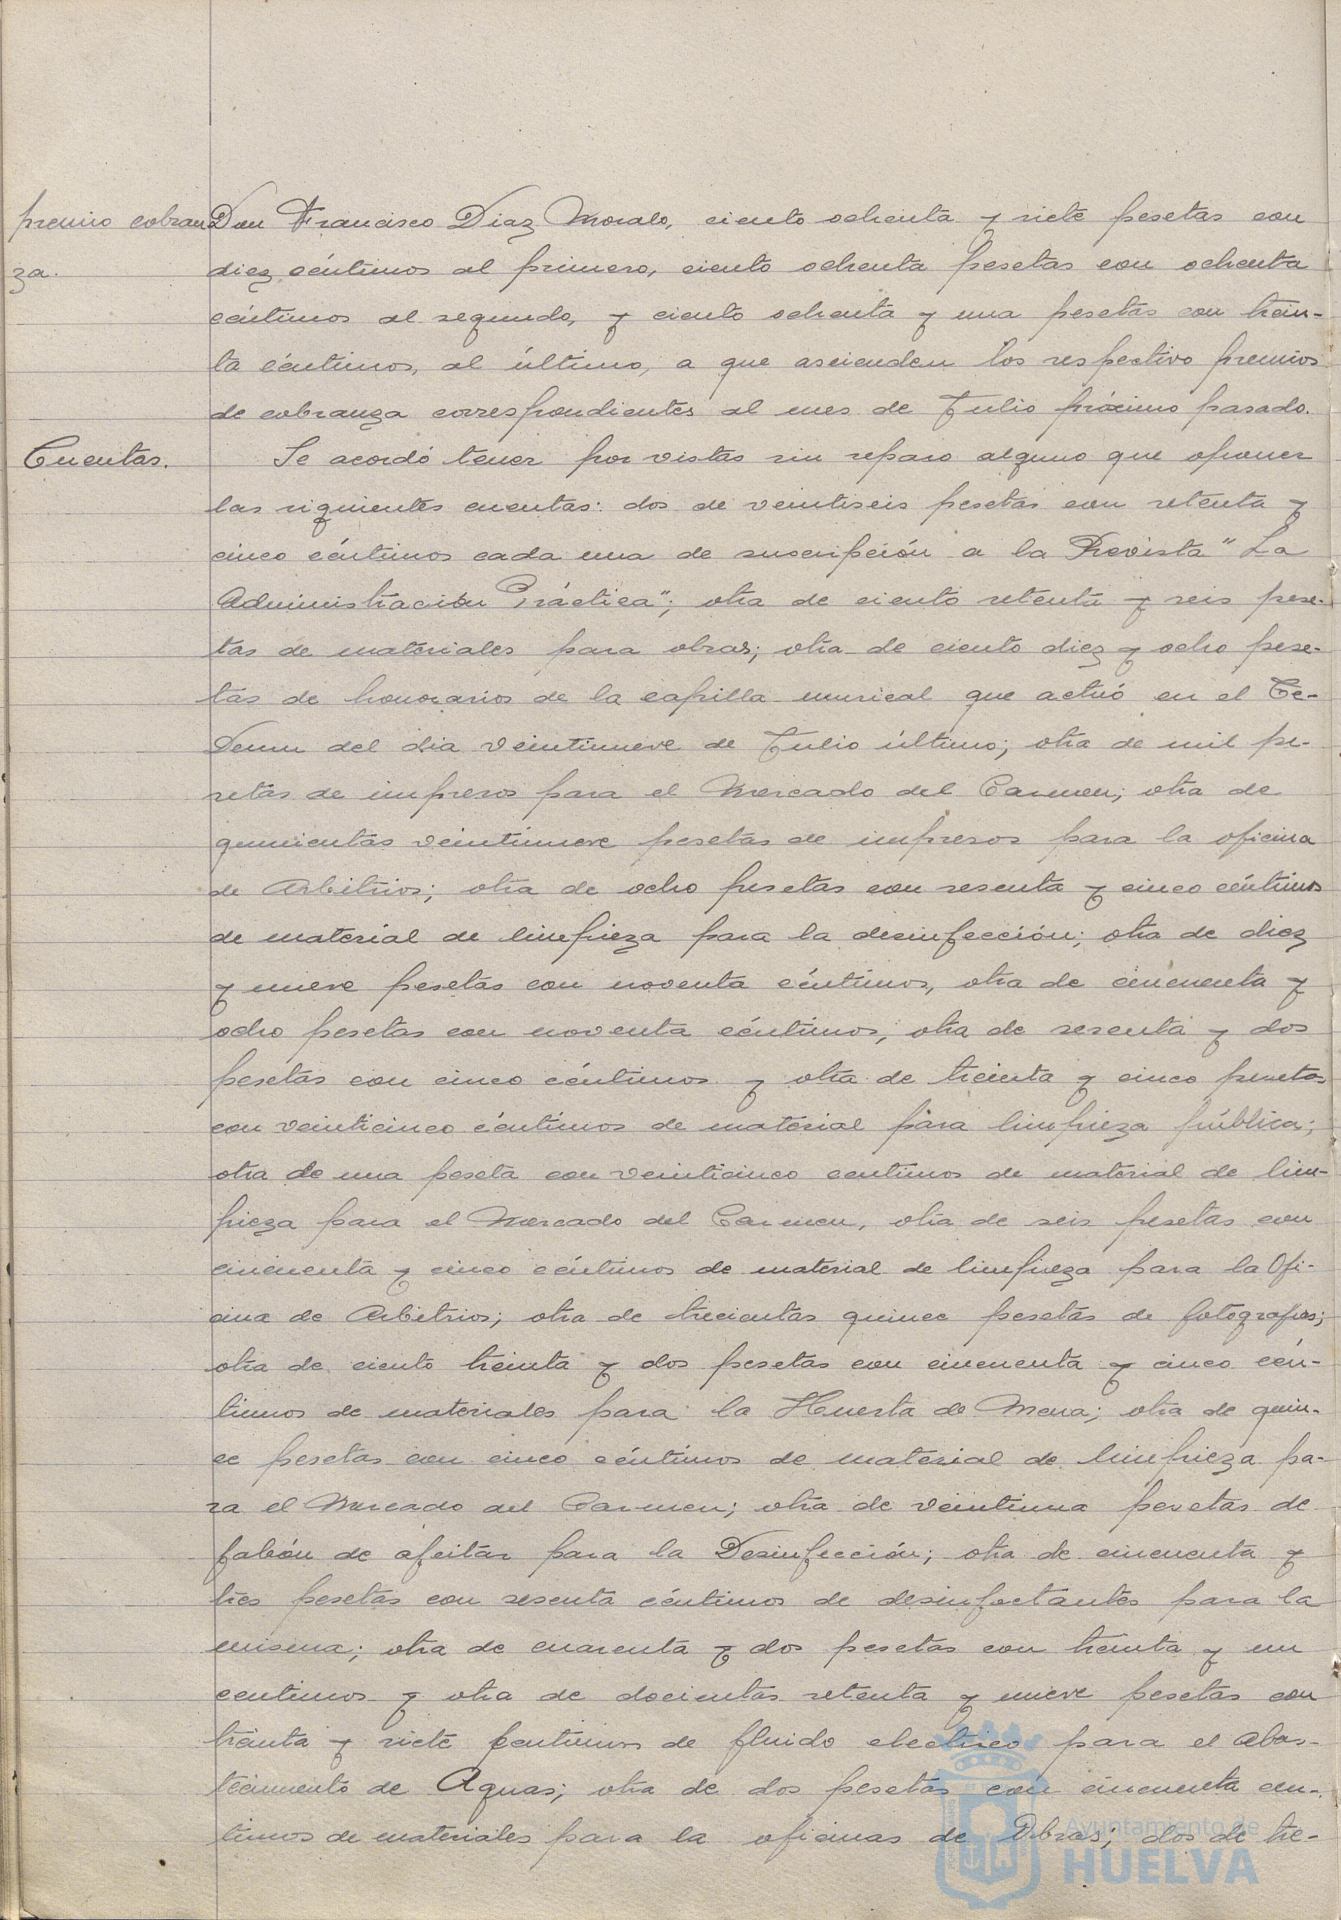 premio cobran
za.
Don Francisco Diaz Moralo, ciento ochenta y siete pesetas con
diez céntimos al primero, ciento ochenta pesetas con ochenta
céntimos al segundo, y ciento ochenta y una pesetas con trein-
ta céntimos, al último, a que ascienden los respectivo premios
de cobranza correspondientes al mes de Julio próximo pasado.
Cuentas.
Se acordó tener por vistas sin reparo alguno que oponer
las siguientes cuentas: dos de veintiseis pesetas con setenta y
cinco céntimos cada una de suscripción a la Revista "La
Administración Práctica"; otra de ciento setenta y seis pese-
tas de materiales para obras; otra de ciento diez y ocho pese-
tas de honorarios de la capilla musical que actuó en el Te-
Deum del dia veintinueve de Julio último; otra de mil pe-
setas de impresos para el Mercado del Carmen; otra de
quinientas veintinueve pesetas de impresos para la oficina
de Arbitrios; otra de ocho pesetas con sesenta y cinco céntimos
de material de limpieza para la desinfección; otra de diez
y nueve pesetas con noventa céntimos, otra de cincuenta y
ocho pesetas con noventa céntimos, otra de sesenta y dos
pesetas con cinco céntimos y otra de treinta y cinco pesetas
con veinticinco céntimos de material para limpieza pública;
otra de una peseta con veinticinco centimos de material de lim-
pieza para el Mercado del Carmen, otra de seis pesetas con
cincuenta y cinco céntimos de material de limpieza para la Ofi-
cina de Arbitrios; otra de trecientas quince pesetas de fotografias;
otra de ciento treinta y dos pesetas con cincuenta y cinco cén-
timos de materiales para la Huerta de Mena; otra de quin-
ce pesetas con cinco céntimos de material de limpieza pa-
ra el Mercado del Carmen; otra de veintiuna pesetas de
jabón de afeitar para la Desinfección; otra de cincuenta y
tres pesetas con sesenta céntimos de desinfectantes para la
misma; otra de cuarenta y dos pesetas con treinta y un
centimos y otra de docientas setenta y nueve pesetas con
treinta y siete centimos de fluido electrico para el abas-
tecimiento de Aguas; otra de dos pesetas con cincuenta cen-
timos de materiales para la oficinas de Obras; dos de tre-
Ayuntamiento de
HUELVA